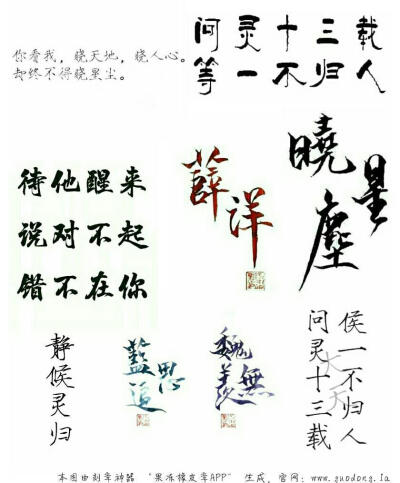 你看我，晓天地，晓人心。
却终不得晓星尘。
问灵十三载
等一不归人
待他醒来
说对不起
错不在你
薛洋
曉星塵
静候灵归
藍思追
魏無羡
问灵十三载
侯一不归人
本图由刻章神器 “果冻橡皮章APP” 生成，官网：www.guodong.la